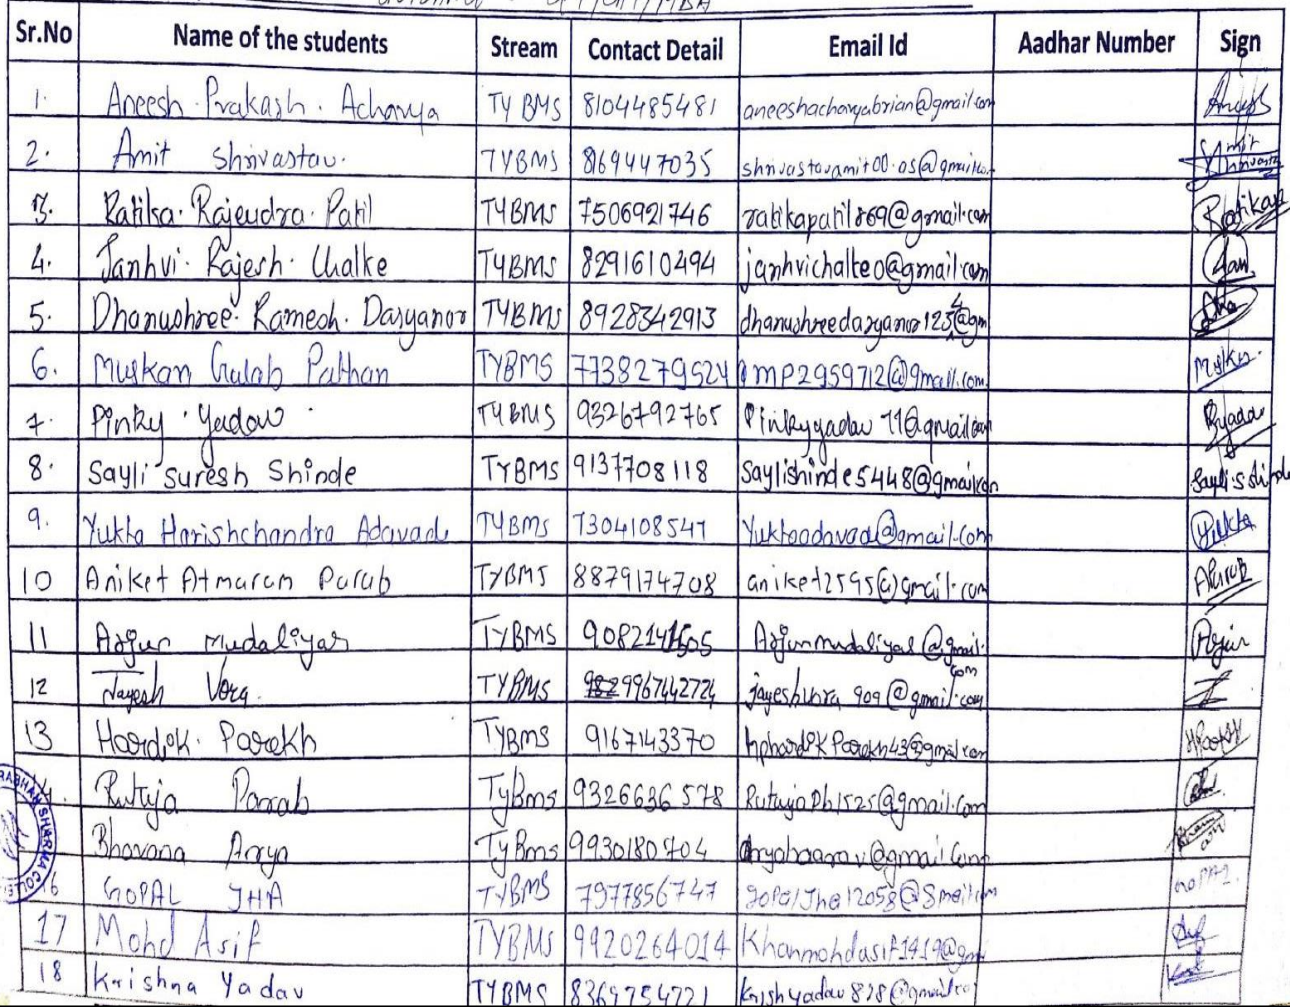 Sr.No Name of the students Stream Contact Detail Email Id Aadhar Number Sign
1. Aneesh Prakash. Acharya TYBMS 8104485481 aneeshacharyabrian@gmail.com
2. Amit Shrivastav. TYBMS 8169447035 shrivastavamit00.05@gmail.com Amit Shrivastav
3. Ratika. Rajendra. Patil TYBMS 7506921746 ratikapatil869@gmail.com Ratika
4. Janhvi. Rajesh. Chalke TYBMS 8291610494 janhvichalke0@gmail.com Jan
5. Dhanushree. Ramesh. Daryanor TYBMS 8928342913
6. Muskan Gulab Pathan TYBMS 7738279524 mp2959712@gmail.com
7. Pinky Yadav TYBMS 9326792765 Pinkyyadav71@gmail.com Pyadav
8. Sayli Suresh Shinde TYBMS 9137708118 Saylishinde5448@gmail.com Sayli.S.Shinde
9. Yukta Harishchandra Adavade TYBMS 7304108547 Yuktaadavad@gmail.com Yukta
10 Aniket Atmaram Parab TYBMS 8879174708 aniket2595@gmail.com AParab
11 Arjun Mudaliyar TYBMS Arjunmudaliyar@gmail.com Arjun
12 Jayesh Vora TYBMS 9967442724 909@gmail.com
13 Hardik. Parekh TYBMS 9167143370 hphardikparekh43@gmail.com
Rutuja Parab TyBms 9326636578 RutujaPb1525@gmail.com
Bhavana Arya TyBms 9930180704
6 GOPAL JHA TYBMS 7977856747 gopaljha12058@gmail.com GOPAL
17 Mohd Asif TYBMS 9920264014 Khanmohdasif1419@gm
18 Krishna Yadav TYBMS 8369754721 krishyadav828@gmail.co